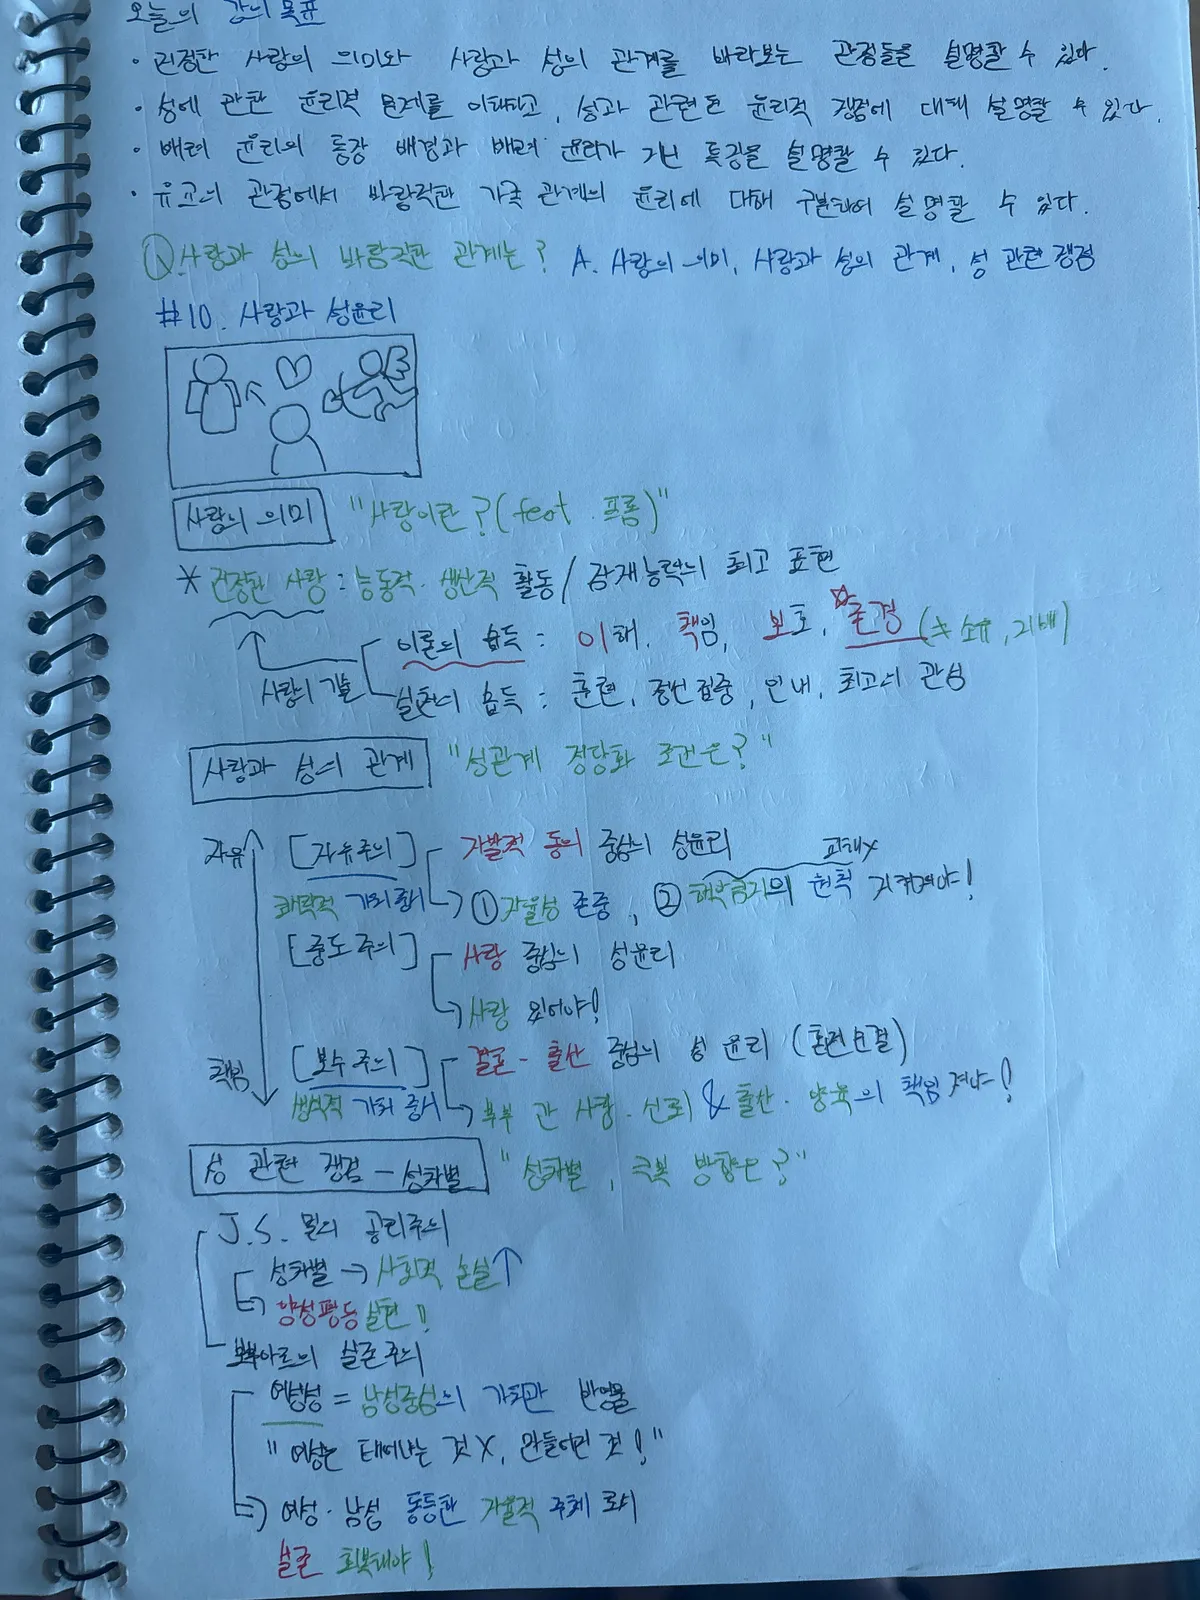 오늘의 강의 목표
· 진정한 사랑의 의미와 사랑과 성의 관계를 바라보는 관점들을 설명할 수 있다.
· 성에 관한 윤리적 문제를 이해하고, 성과 관련된 윤리적 쟁점에 대해 설명할 수 있다.
· 배려 윤리의 등장 배경과 배려 윤리가 지닌 특징을 설명할 수 있다.
· 유교의 관점에서 바람직한 가족 관계의 윤리에 대해 구분하여 설명할 수 있다.
Q. 사랑과 성의 바람직한 관계는? A. 사랑의 의미, 사랑과 성의 관계, 성 관련 쟁점
#10. 사랑과 성윤리
사랑의 의미 "사랑이란? (feat. 프롬)"
* 진정한 사랑 : 능동적·생산적 활동 / 잠재능력의 최고 표현
이론의 습득 : 이해, 책임, 보호, ☆존경 (≠소유, 지배)
사랑의 기술
실천의 습득 : 훈련, 정신집중, 인내, 최고의 관심
사랑과 성의 관계 "성관계 정당화 조건은?"
자유 [자유주의] 자발적 동의 중심의 성윤리 피해x
쾌락적 가치 중시 → ① 자율성 존중, ② 해악금지의 원칙 지켜져야!
[중도주의] 사랑 중심의 성윤리
→ 사랑 있어야!
책임 [보수주의] 결혼-출산 중심의 성 윤리 (혼전순결)
생식적 가치 중시 → 부부 간 사랑·신뢰 & 출산·양육의 책임 져야!
성 관련 쟁점 - 성차별 "성차별, 극복 방향은?"
J.S. 밀의 공리주의
성차별 → 사회적 손실↑
→ 양성평등 실현!
보부아르의 실존주의
여성성 = 남성중심의 가치관 반영물
"여성은 태어나는 것 X, 만들어진 것!"
→ 여성·남성 동등한 자율적 주체로서
실존 회복해야!